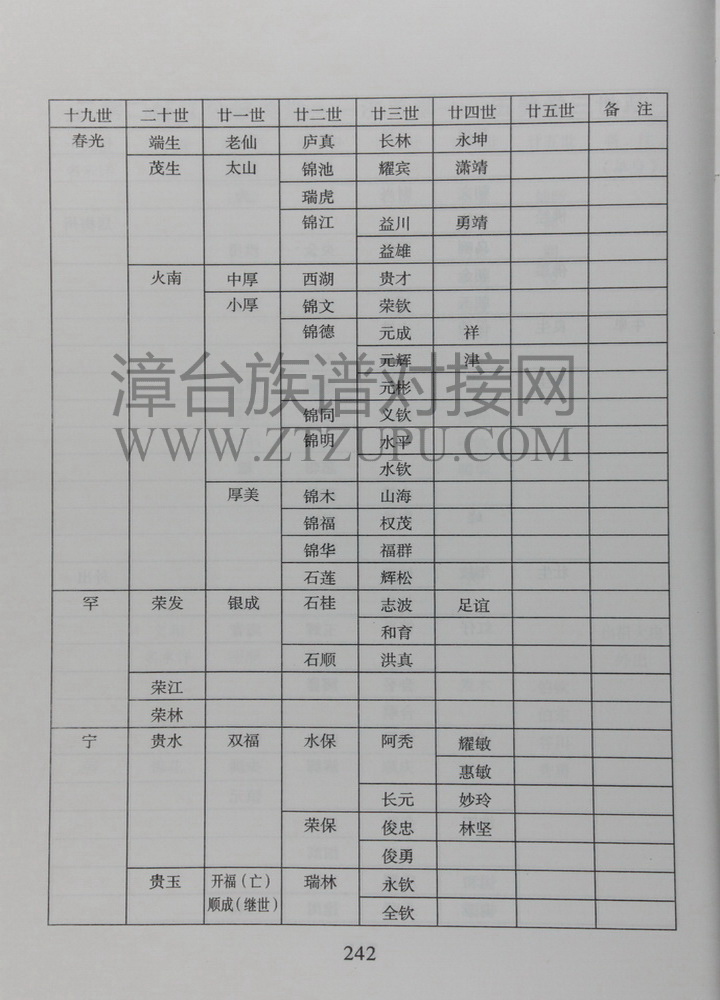 十九世 二十世 廿一世 廿二世 廿三世 廿四世 廿五世 备 注
春光 端生 老仙 庐真 长林 永坤
茂生 太山 锦池 耀宾 潇靖
瑞虎
锦江 益川 勇靖
益雄
火南 中厚 西湖 贵才
小厚 锦文 荣钦
锦德 元成 祥
元辉 津
元彬
锦同 义钦
锦明 水平
水钦
厚美 锦木 山海
锦福 权茂
锦华 福群
石莲 辉松
罕 荣发 银成 石桂 志波 足谊
和育
石顺 洪真
荣江
荣林
宁 贵水 双福 水保 阿秃 耀敏
惠敏
长元 妙玲
荣保 俊忠 林坚
俊勇
贵玉 开福（亡） 瑞林 永钦
顺成（继世） 全钦
漳台族谱对接网
WWW.ZTZUPU.COM
242